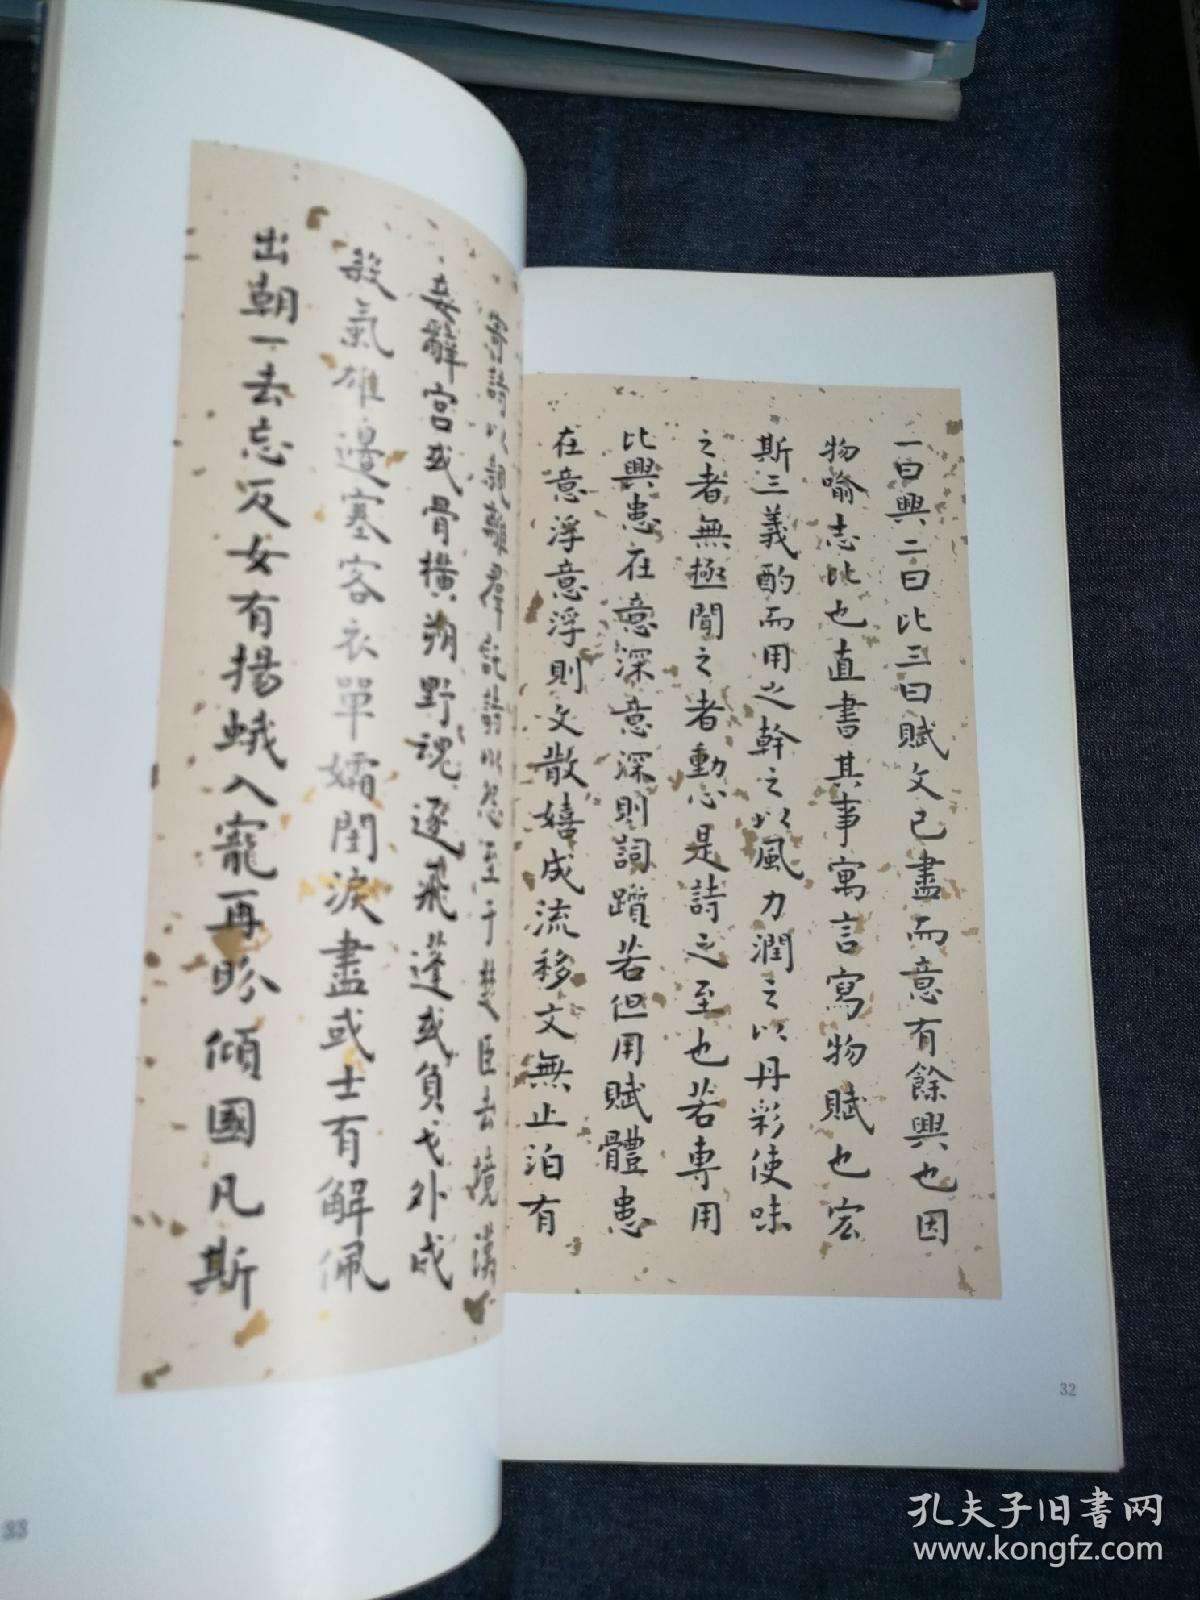 一曰興二曰比三曰賦文已盡而意有餘興也因
物喻志比也直書其事寓言寫物賦也宏
斯三義酌而用之幹之以風力潤之以丹彩使味
之者無極聞之者動心是詩之至也若專用
比興患在意深意深則詞躓若但用賦體患
在意浮意浮則文散嬉成流移文無止泊有
32
寄詩以親離羣託詩以怨至于楚臣去境漢
妾辭宮或骨橫朔野魂逐飛蓬或負戈外戍
殺氣雄邊塞客衣單孀閨淚盡或士有解佩
出朝一去忘反女有揚蛾入寵再盼傾國凡斯
33
孔夫子旧書网
www.kongfz.com